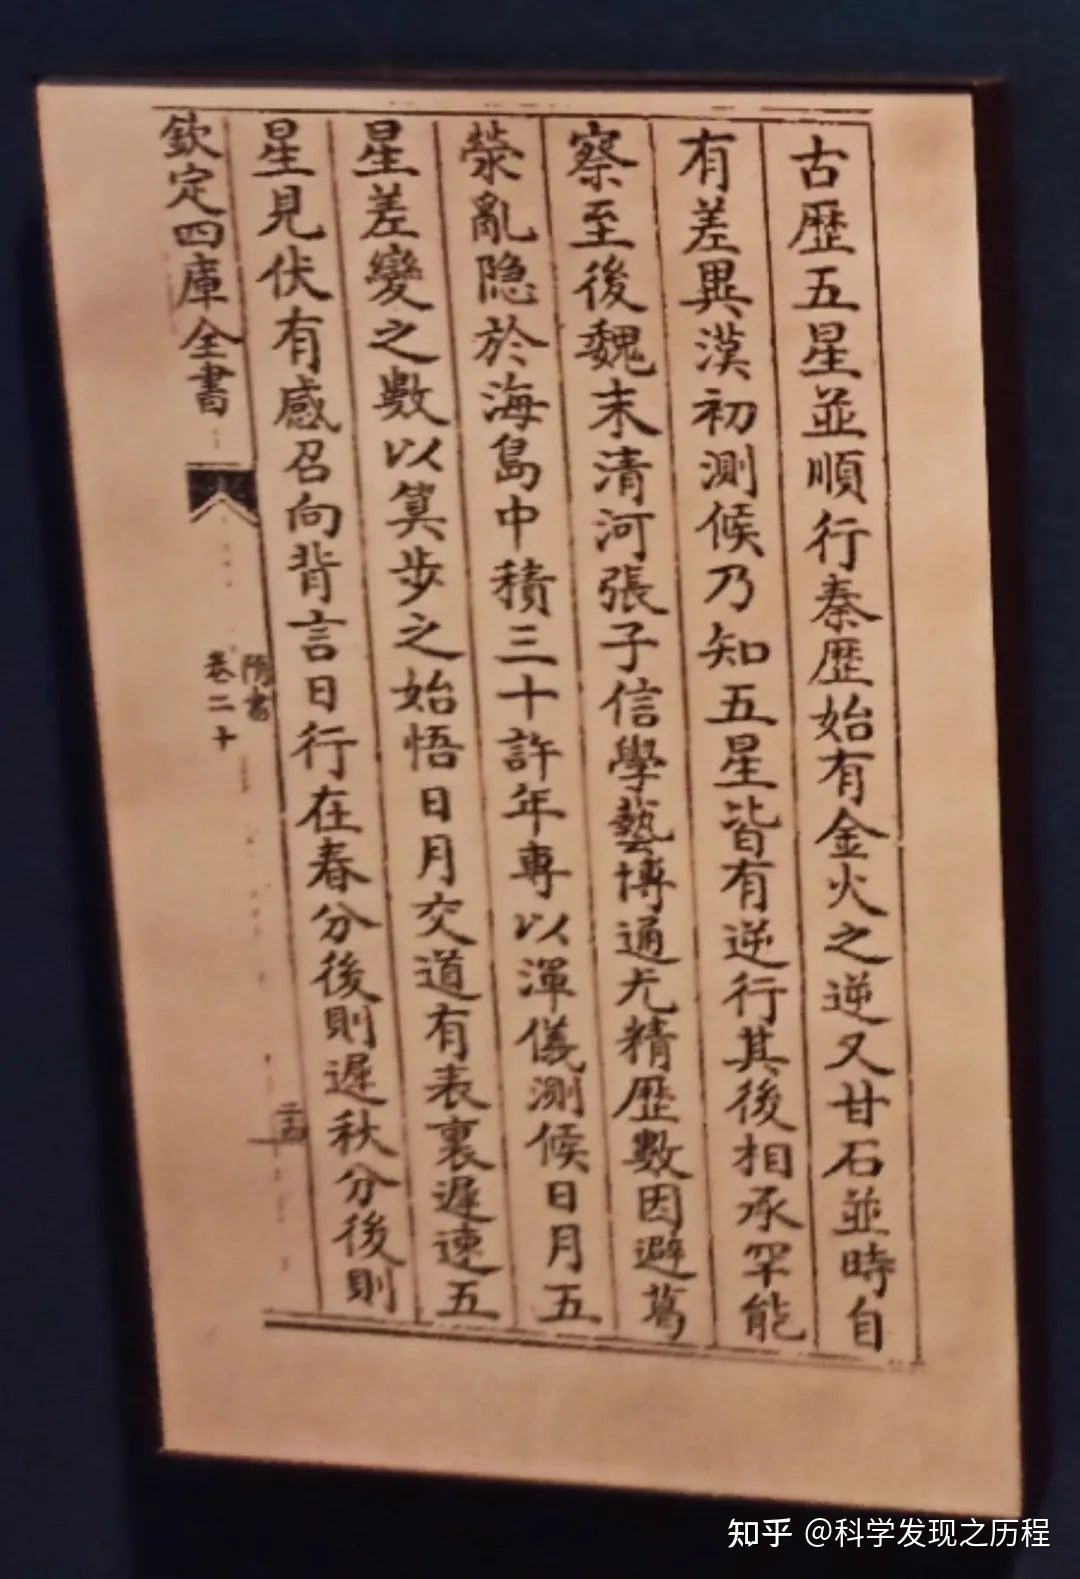 古歴五星並順行秦歴始有金火之逆又甘石並時自
有差異漢初測候乃知五星皆有逆行其後相承罕能
察至後魏末清河張子信學藝博通尤精歴數因避葛
滎亂隐於海島中積三十許年専以渾儀測候日月五
星差變之數以算步之始悟日月交道有表裏遲速五
星見伏有感召向背言日行在春分後則遲秋分後則
欽定四庫全書
隋書
卷二十
二十四
知乎 @科学发现之历程